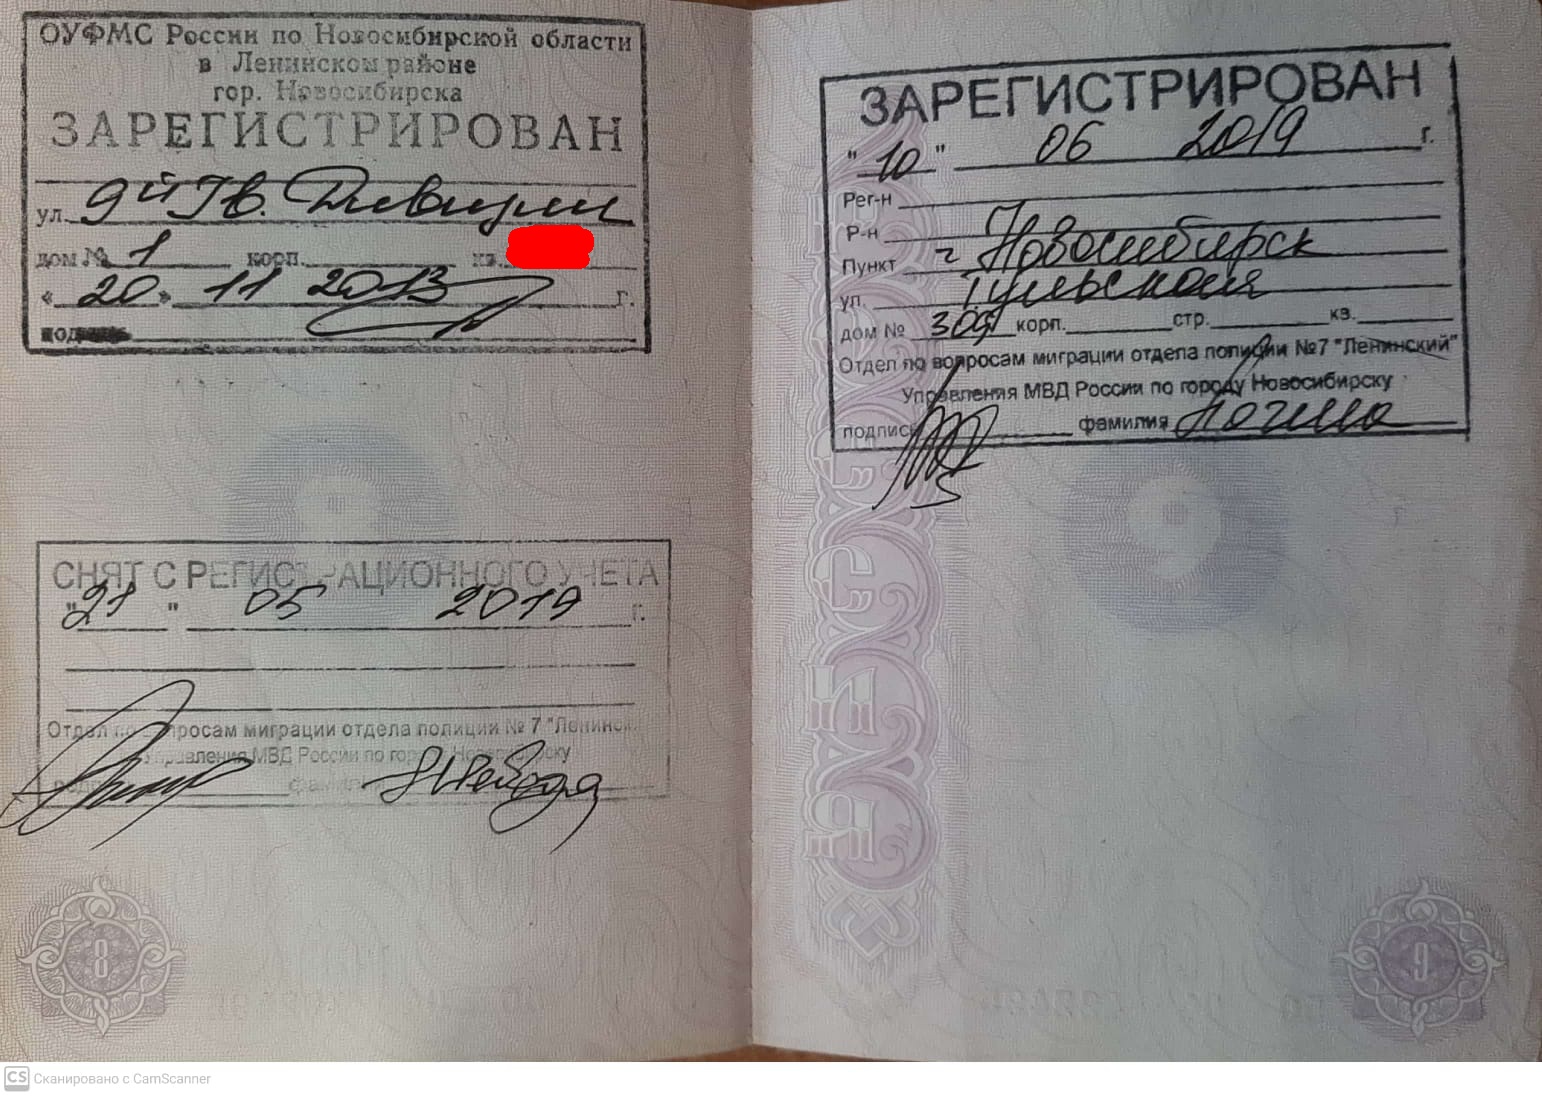 ОУФМС России по Новосибирской области
в Ленинском районе
гор. Новосибирска
ЗАРЕГИСТРИРОВАН
ул. 9й Гв. Дивизии
дом № 1 корп. кв.
"20" 11 2013 г.
подпись
СНЯТ С РЕГИСТРАЦИОННОГО УЧЕТА
"21" 05 2019 г.
Отдел по вопросам миграции отдела полиции № 7 "Ленинский"
Управления МВД России по городу Новосибирску
подпись фамилия
8
ЗАРЕГИСТРИРОВАН
"10" 06 2019 г.
Рег-н
Р-н
Пункт г Новосибирск
ул. Тульская
дом № корп. стр. кв.
Отдел по вопросам миграции отдела полиции №7 "Ленинский"
Управления МВД России по городу Новосибирску
подпись фамилия
9
CS Сканировано с CamScanner